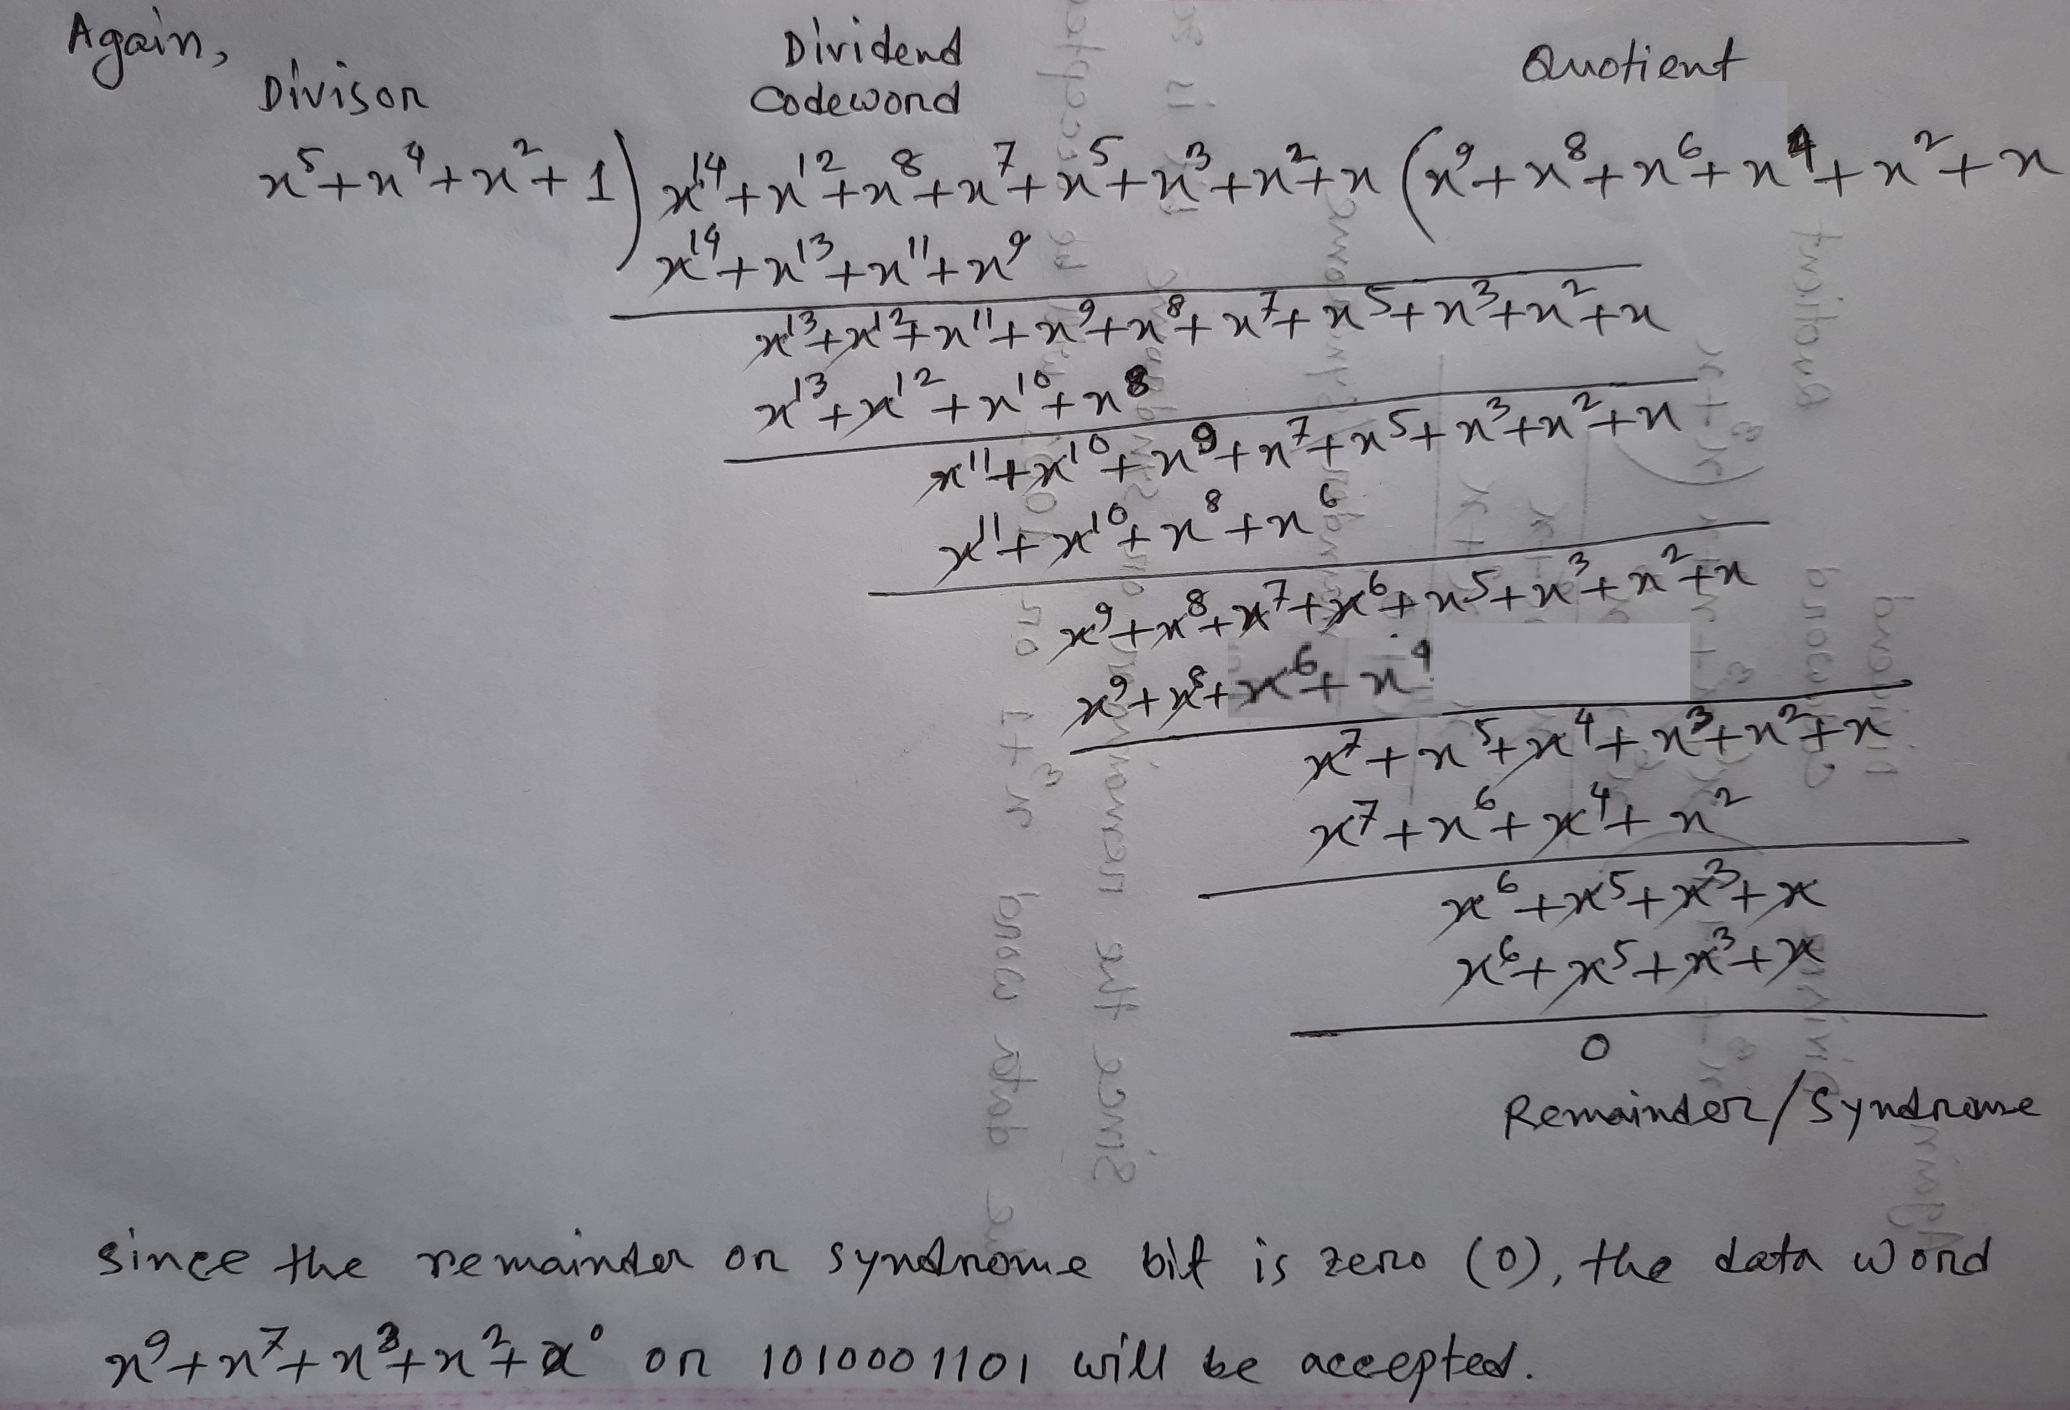 Again,
Divisor Dividend Quotient
Codeword
x⁵+x⁴+x²+1) x¹⁴+x¹²+x⁸+x⁷+x⁵+x³+x²+x (x⁹+x⁸+x⁶+x⁴+x²+x
x¹⁴+x¹³+x¹¹+x⁹
x¹³+x¹²+x¹¹+x⁹+x⁸+x⁷+x⁵+x³+x²+x
x¹³+x¹²+x¹⁰+x⁸
x¹¹+x¹⁰+x⁹+x⁷+x⁵+x³+x²+x
x¹¹+x¹⁰+x⁸+x⁶
x⁹+x⁸+x⁷+x⁶+x⁵+x³+x²+x
x⁹+x⁸+x⁶+x⁴
x⁷+x⁵+x⁴+x³+x²+x
x⁷+x⁶+x⁴+x²
x⁶+x⁵+x³+x
x⁶+x⁵+x³+x
0
Remainder/Syndrome
since the remainder or syndrome bit is zero (0), the data word
x⁹+x⁷+x³+x²+x⁰ or 1010001101 will be accepted.